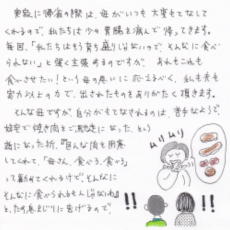 実家に帰省の際は、母がいつも大変もてなして
くれるので、私たちは少々胃腸を痛んで帰ってきます。
毎回、「私たちはもう育ち盛りじゃないので、そんなに食べ
られない」と強く主張するのですが、あれもこれも
食べさせたい！という母の思いに応えるべく、私も夫も
実力以上の力で、出されたものをありがたく頂きます。
そんな母ですが、自分がもてなされるのは、苦手なようで、
で焼き肉をご馳走になった、という
話になった折、「Bんな肉を用意
してくれて、「母さん、食べろ、食べろ」
って勧めてくれるけど、そんなに
そんなに食べられるもんじゃないね」
と、ため息まじりに告げるので、
ムリムリ
!!
!!